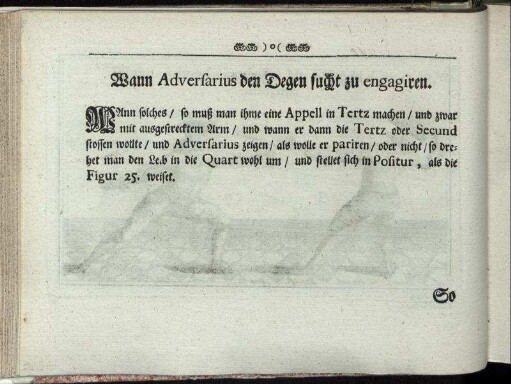 ) o (
Wann Adversarius den Degen sucht zu engagiren.
WAnn solches / so muß man ihme eine Appell in Tertz machen / und zwar
mit ausgestrecktem Arm / und wann er dann die Tertz oder Secund
stossen wollte / und Adversarius zeigen / als wolle er pariren / oder nicht / so dre-
het man den Leib in die Quart wohl um / und stellet sich in Positur, als die
Figur 25. weiset.
So